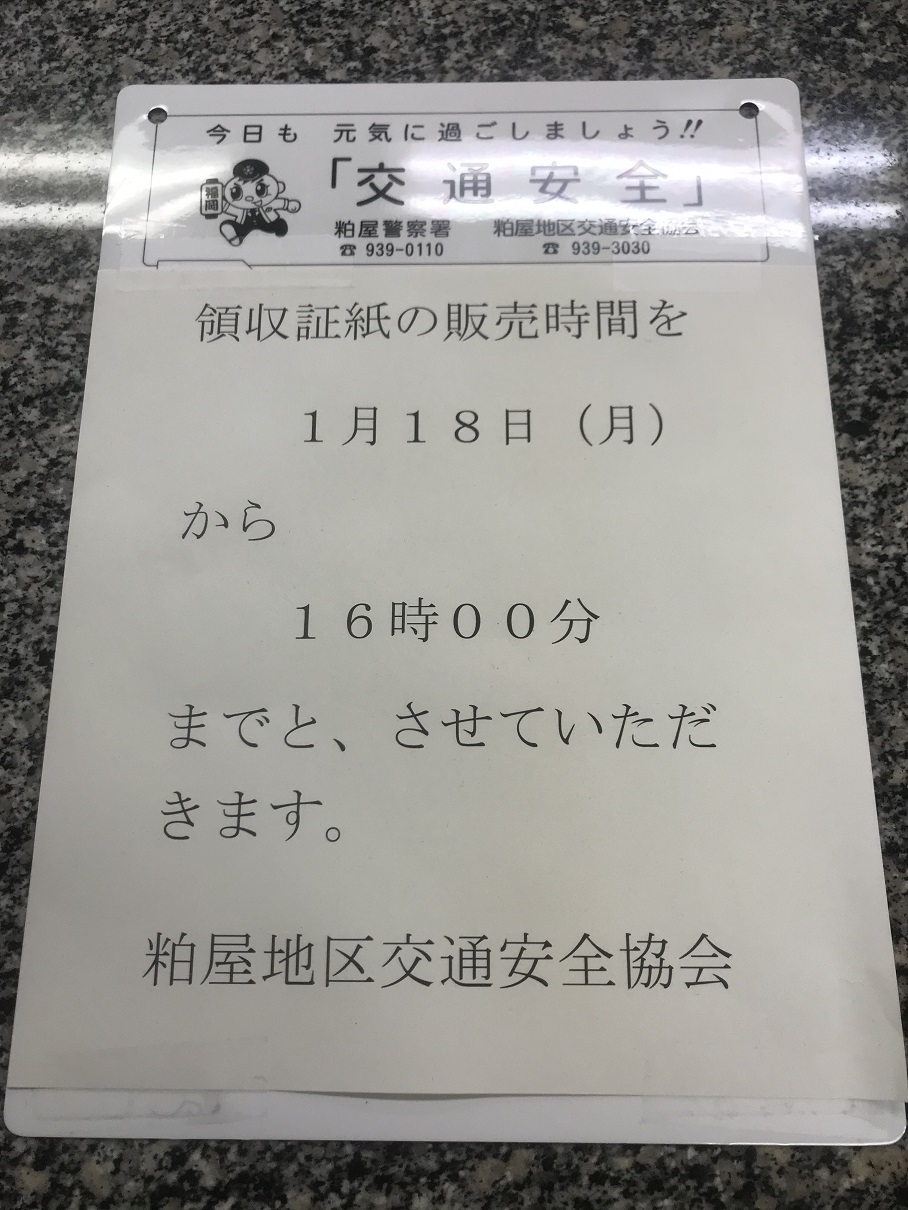 今日も 元気に過ごしましょう!!
「交通安全」
福岡
粕屋警察署 粕屋地区交通安全協会
☎ 939-0110 ☎ 939-3030
領収証紙の販売時間を
１月１８日（月）
から
１６時００分
までと、させていただ
きます。
粕屋地区交通安全協会